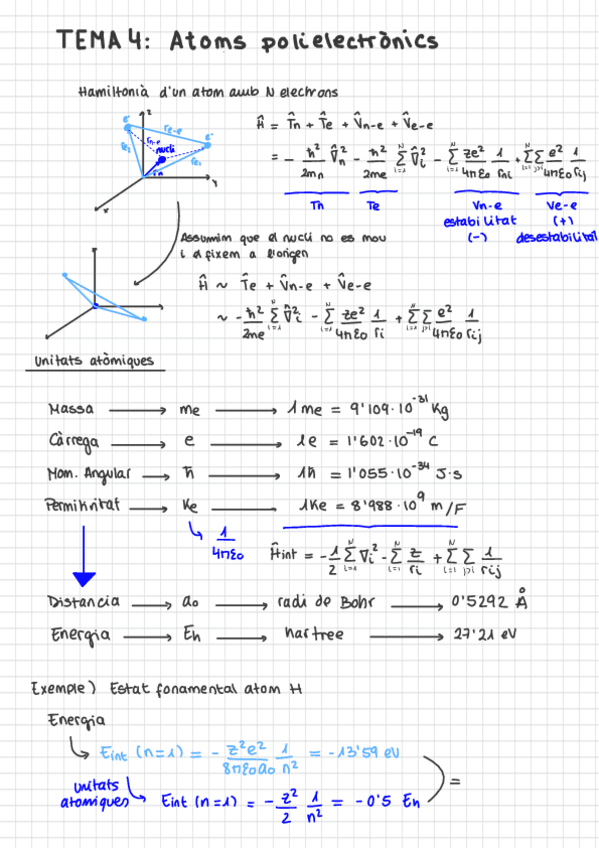 TEMA 4: Àtoms polielectrònics
Hamiltonià d'un àtom amb N electrons
z
e⁻
re-e
e⁻
rn-e
nucli
re₁
re₂
rn
Y
x
Ĥ = T̂n + T̂e + V̂n-e + V̂e-e
= - ħ²/2mn ∇̂²n - ħ²/2me Σ(i=1→N) ∇̂²i - Σ(i=1→N) ze²/4πεo 1/rni + Σ(i=1→N) Σ(j>i) e²/4πεo 1/rij
Tn
Te
Vn-e
estabilitat
(-)
Ve-e
(+)
desestabilitat
Assumim que el nucli no es mou
i el fixem a l'origen
Ĥ ~ T̂e + V̂n-e + V̂e-e
~ - ħ²/2me Σ(i=1→N) ∇̂²i - Σ(i=1→N) ze²/4πεo 1/ri + Σ(i=1→N) Σ(j>i) e²/4πεo 1/rij
Unitats atòmiques
Massa → me → 1me = 9'109·10⁻³¹ Kg
Càrrega → e → 1e = 1'602·10⁻¹⁹ C
Mom. Angular → ħ → 1ħ = 1'055·10⁻³⁴ J·s
Permitivitat → Ke → 1Ke = 8'988·10⁹ m/F
↳ 1/4πεo
Ĥint = - 1/2 Σ(i=1→N) ∇i² - Σ(i=1→N) z/ri + Σ(i=1→N) Σ(j>i) 1/rij
Distància → ao → radi de Bohr → 0'5292 Å
Energia → Eh → hartree → 27'21 eV
Exemple) Estat fonamental àtom H
Energia
↳ Eint (n=1) = - z²e²/8πεoao 1/n² = -13'59 eV
unitats
atòmiques
↳ Eint (n=1) = - z²/2 1/n² = -0'5 Eh
=